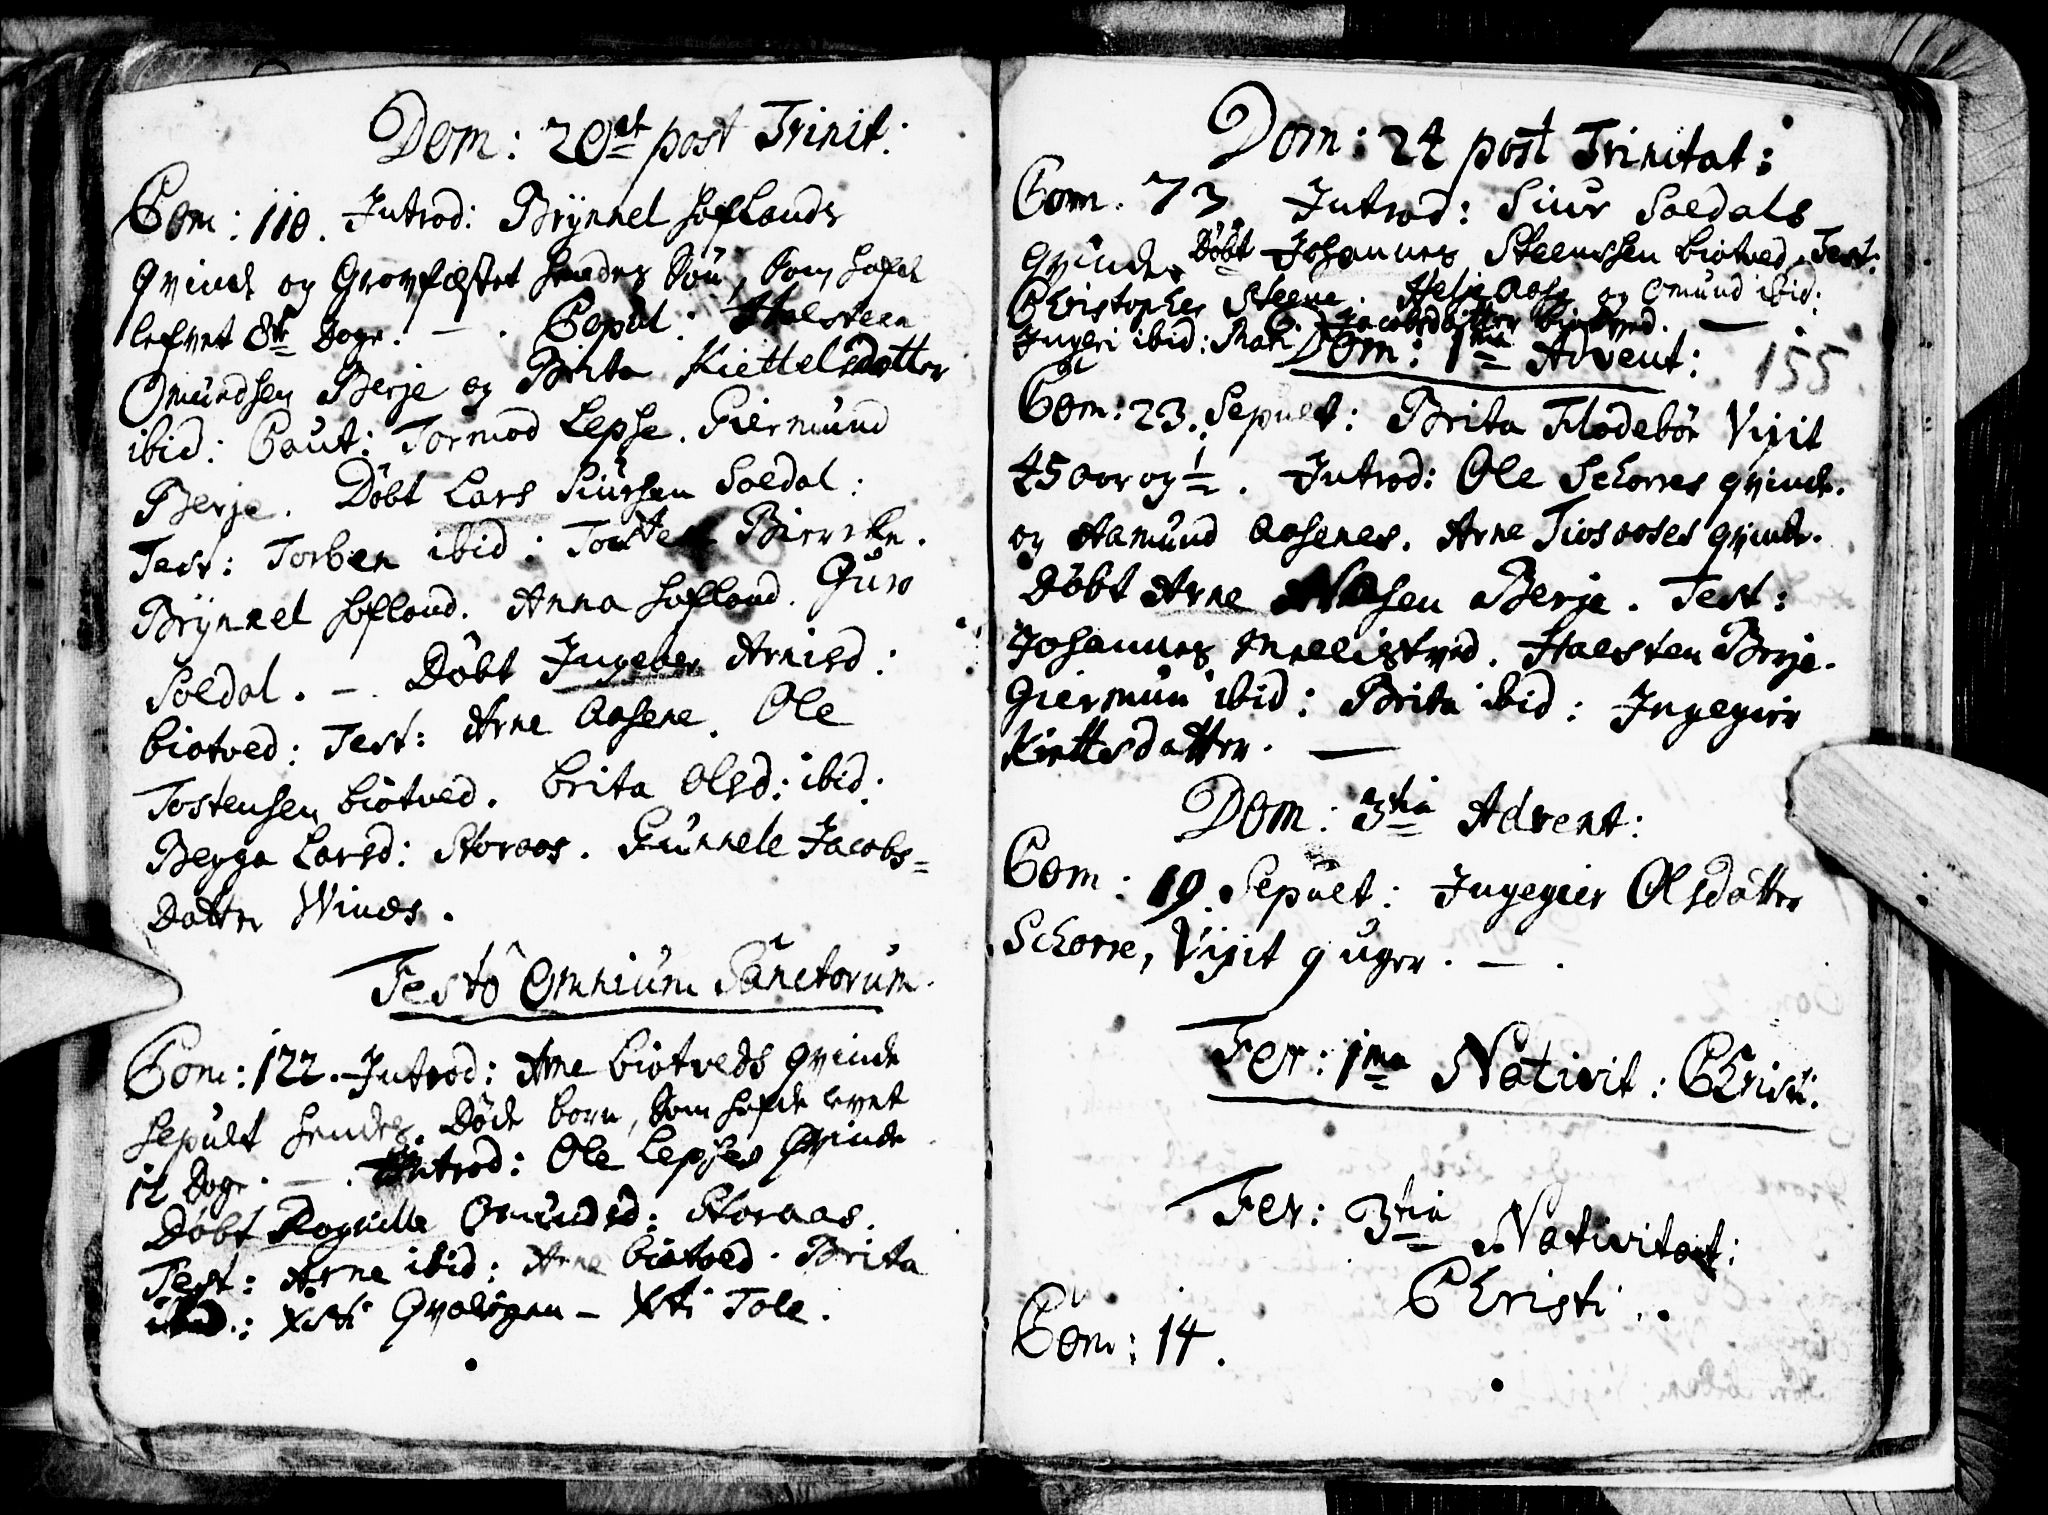 Dom: 20de post Trinit:
Com: 110. Introd: Brÿnnel Hoflands
Qvinde og Grovfæstet hendes Sön, som hafde
lefvet 8te Doge. — . Copul: Halsteen
Omundsen Berje og Brita Kiettelsdotter
ibid: Caut: Tormod Lepse. Giermund
Berje. Döbt Lars Siursen Soedal:
Test: Torben ibid: Bircke.
Brÿnnel Hofland. Anna Hofland. Guro
Soedal. — Döbt Ingebor Arnisd:
biotved: Test: Arne Aasene. Ole
Tostensen biotved. brita Olsd: ibid:
Begga Larsd: Storaas. Gunnele Jacobs=
Datter Winds.
Festo Omnium Sanctorum.
Com: 122. Introd: Arne biotveds qvinde
sepult hendes Döde born, som hafde levet
12 Doge. — . Introd: Ole Lepses Qvinde
Döbt Rognille Omundsd: Storaas.
Test: Arne ibid: Arne biotved. Brita
ibid: Xsti Qvalögen — Xsti Tole.
Dom: 24 post Trinitat:
Com. 73. Introd: Siur Soedals
Qvinde. Döbt Johannes Steensen biotved. Test:
Christopher Steene. Helje Aase og Omund ibid:
Ingeri ibid: Mari Jacobsdatter biotved. —
Dom: 1ma Advent: 155
Com: 23. Sepult: Brita Flodebör Vixit
45 aar og ½. Introd: Ole Schorres qvinde.
og Aamund Aasenes. Arne Tiosaases qvinde.
Döbt Arne Berje. Test:
Johannes Mælistved. Halsten Berje.
Giermun ibid: Brita ibid: Ingegier
Kiettsdatter. —
Dom: 3tia Advent:
Com: 19. Sepult: Ingegier Olsdatter
Schorre, Vixit 9 uger. — .
Fer: 1ma Nativit: Christi:
Fer: 3tia Nativitat:
Christi..
Com: 14.